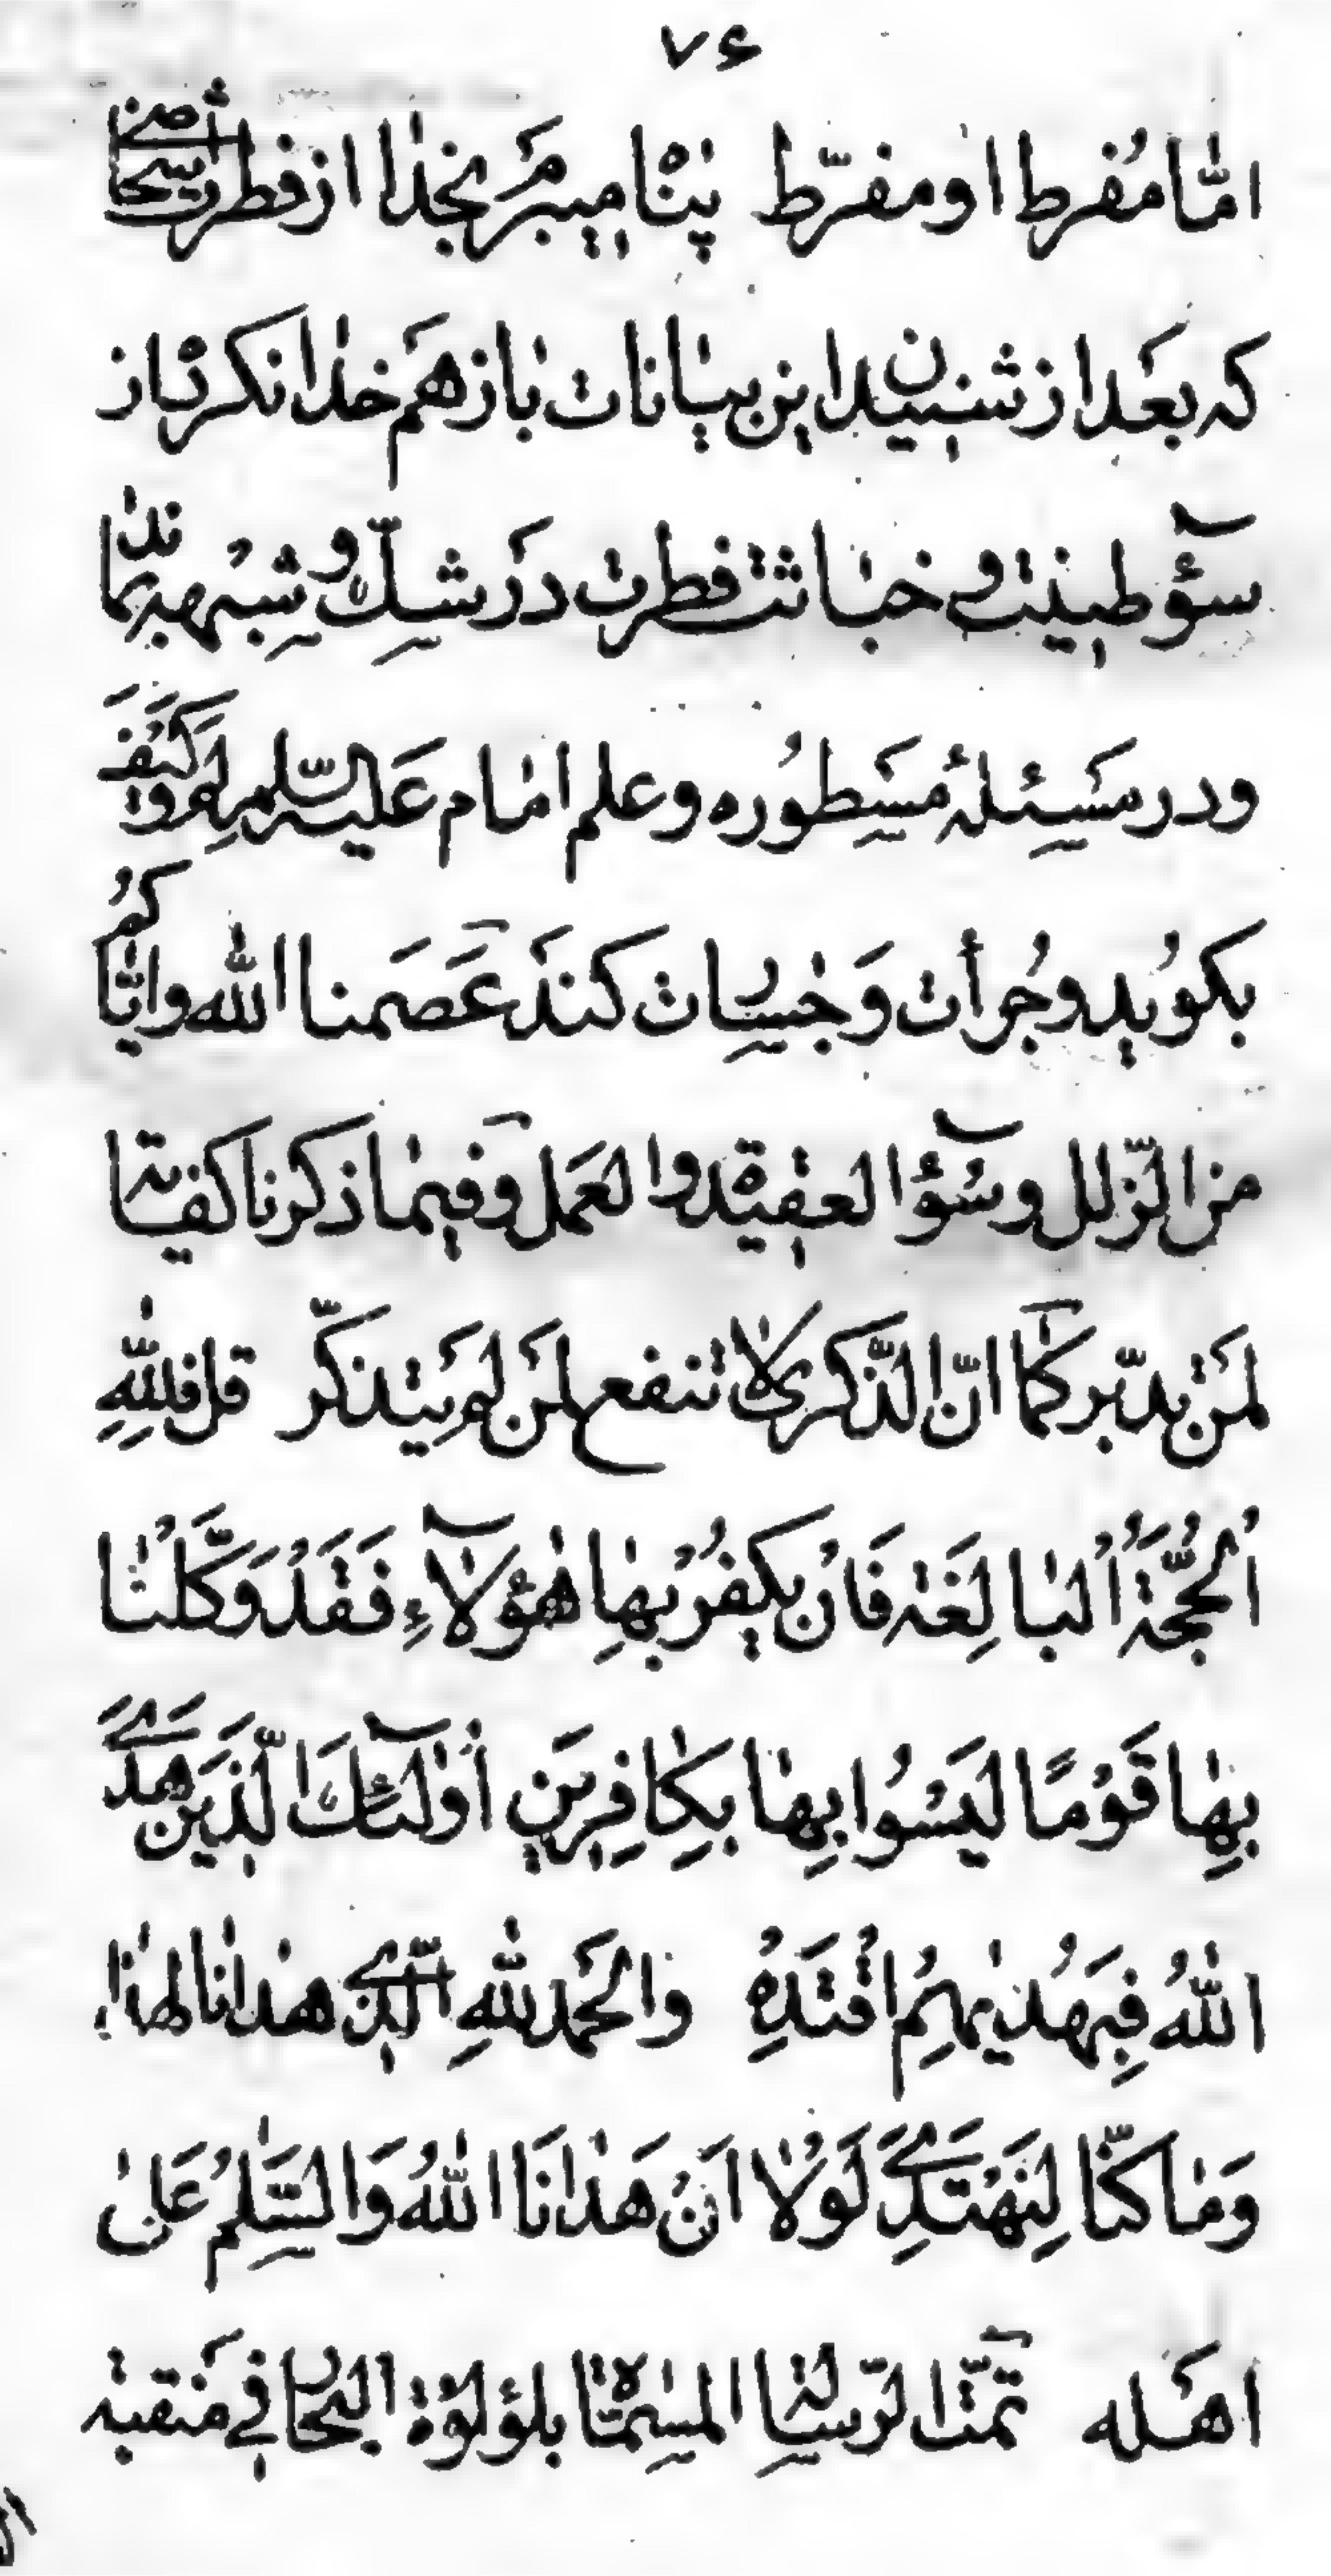 ۷۶
امّا مُفرط او مفرّط پناه میبرم بخدا از فطرت شخصی
که بعد از شنیدن این بیانات باز هم خدا نکرده از
سوٓء طینت و خباثت فطرت در شکّ و شبهه بماند
و در مسئلهٔ مسطوره و علم امام علیه السّلم لم و کیف
بکوید و جُرأت و جسارت کند عَصَمنا اللّه و ایّاکم
من الزّلل و سُوٓء العقیدة و العمل و فیما ذکرنا کفایة
لمن تدبّر کما انّ الذّکری لا تنفع لمن لم یتذکّر قل فللّهِ
اُلحُجَّةُ اُلبالِغَه فَاِنْ یَکفُرْ بِها هٰؤُلآءِ فَقَدْ وَکَّلْنا
بِها قَوْمًا لَیْسُوا بِها بِکافِرینَ اُولٰٓئِکَ الَّذینَ هَدَی
اللّهُ فَبِهُدیٰهُمُ اقْتَدِهْ و الحَمدُ للّهِ الّذی هدانا لهذا
وَ ما کنّا لِنَهْتَدِیَ لَوْلا اَنْ هَدانَا اللّهُ وَ السَّلٰمُ عَلیٰ
اهله تمّت الرّسالة المسمّاة بلؤلؤة البحار فی منقبة